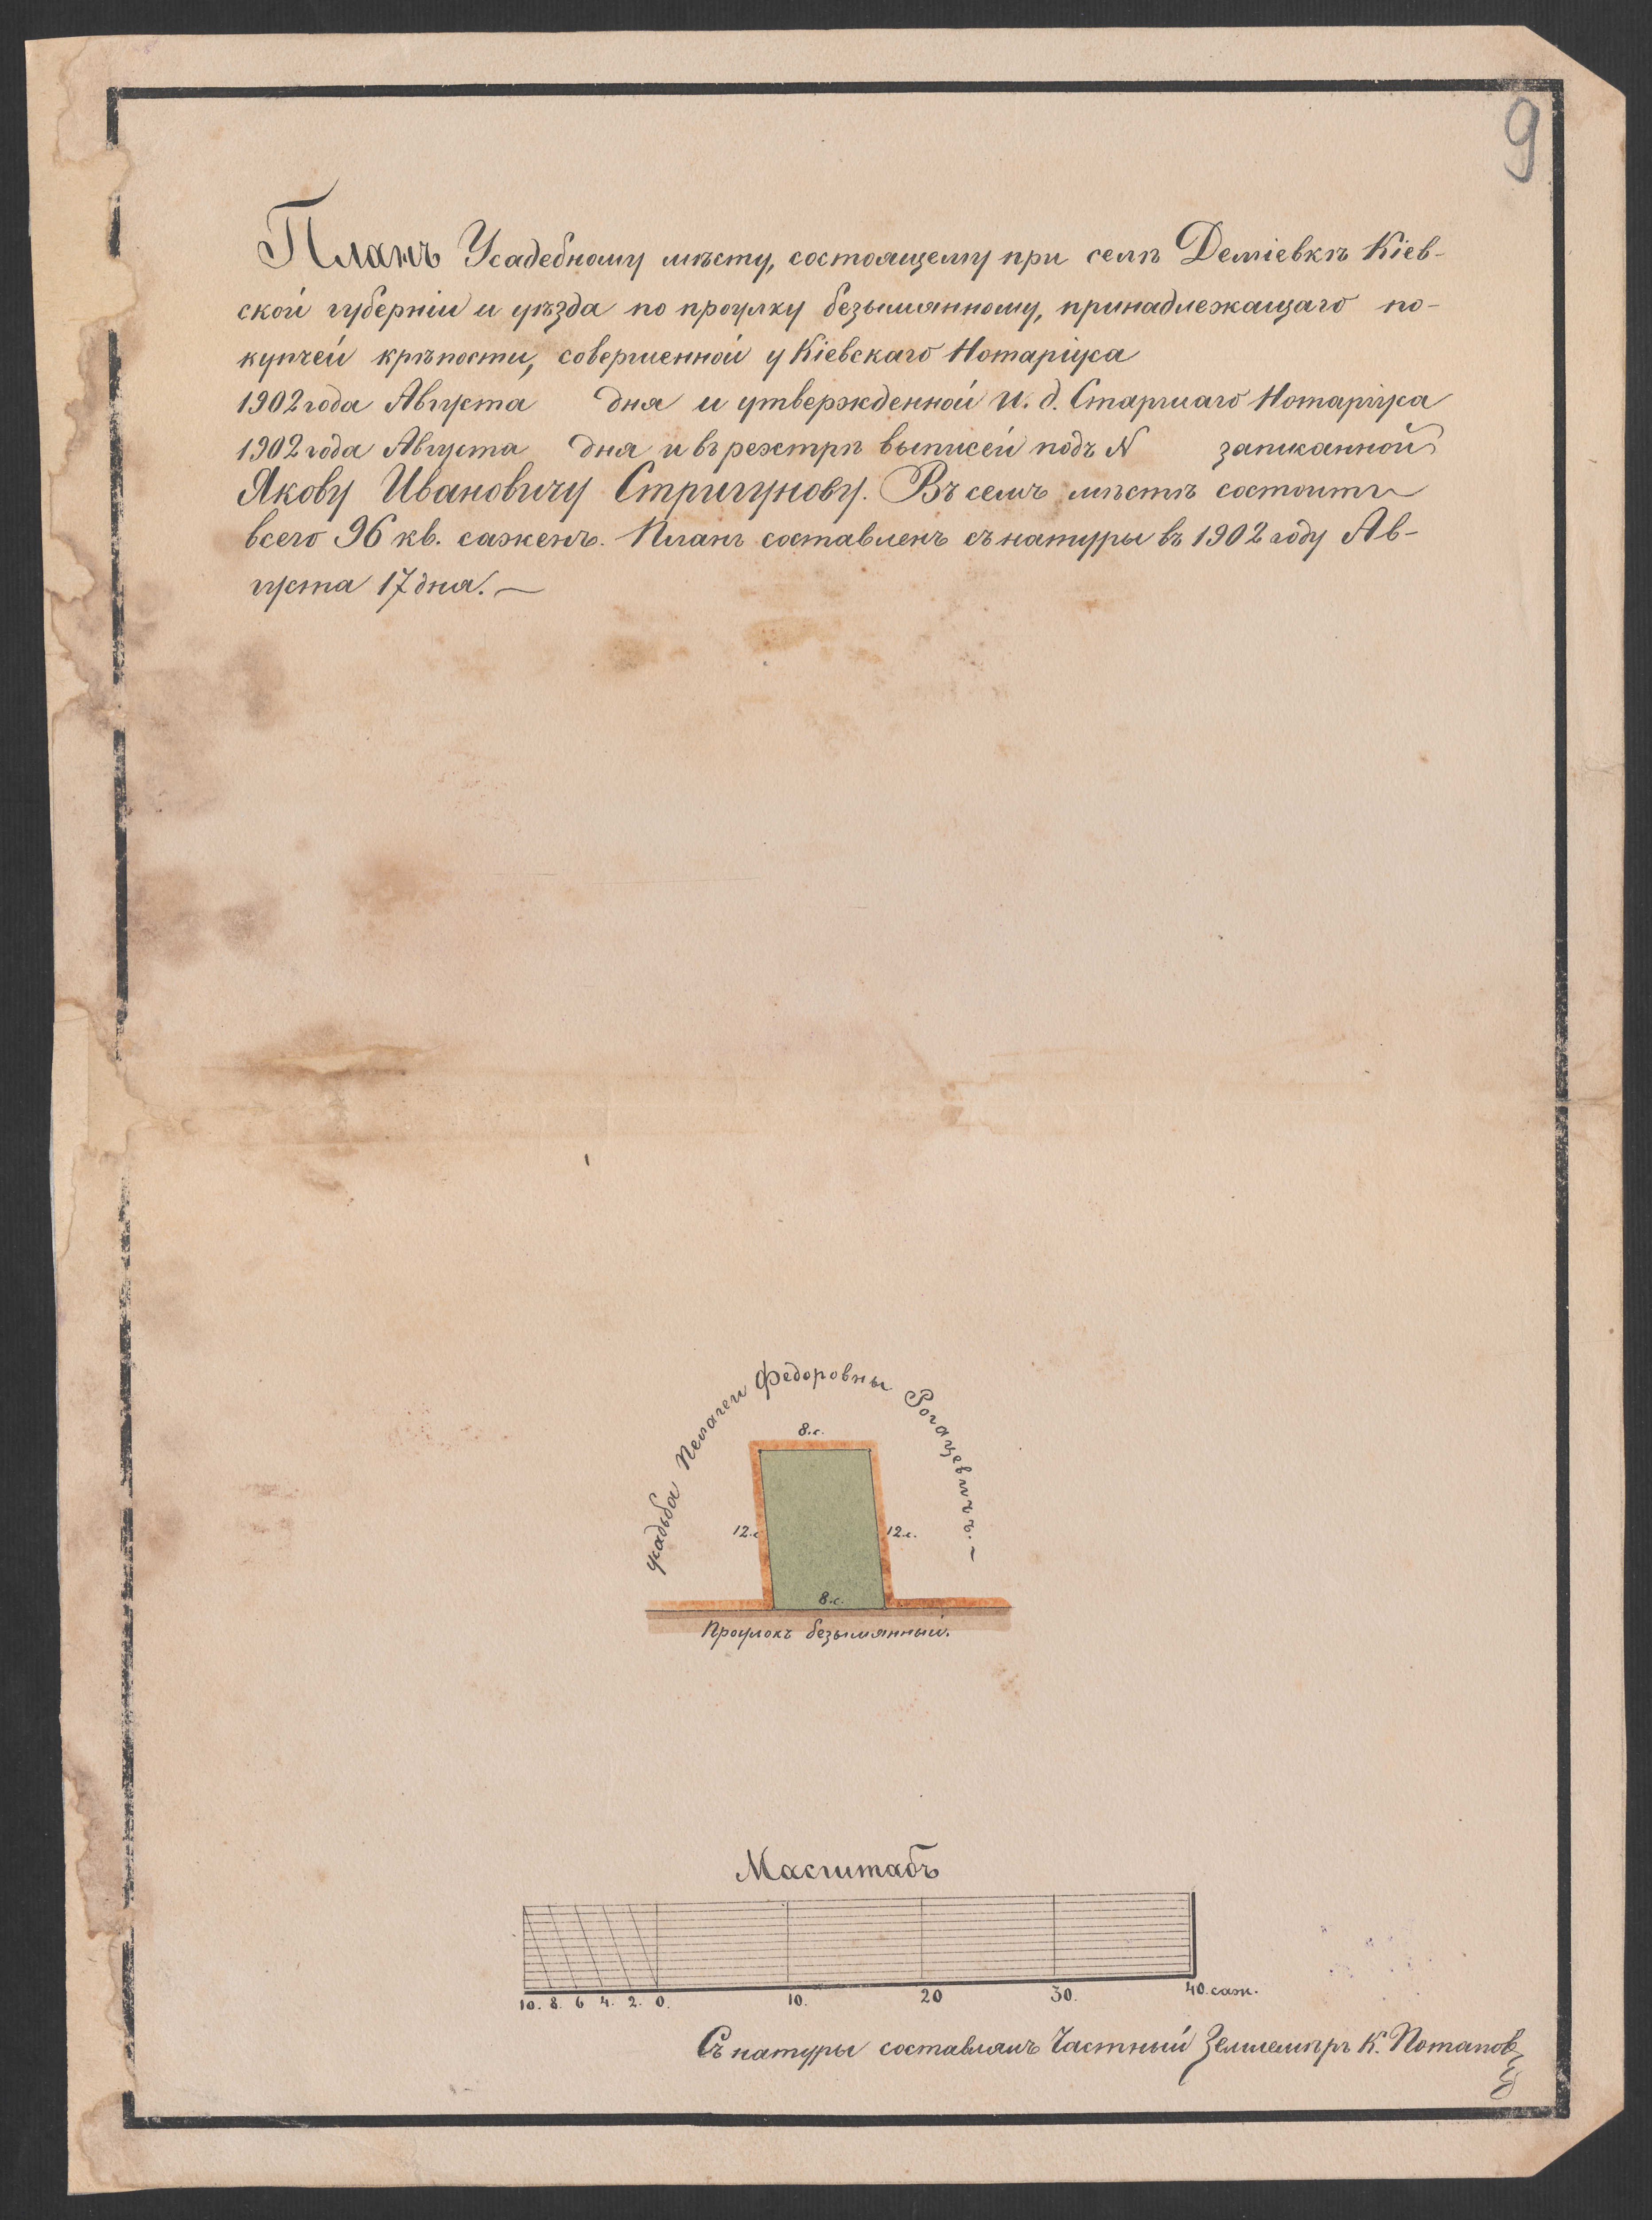 9
Планъ Усадебному мѣсту, состоящему при селѣ Деміевкѣ Кіев-
ской губерніи и уѣзда по проулку безымянному, принадлежащаго по-
купчей крѣпости, совершенной у Кіевскаго Нотаріуса
1902 года Августа дня и утвержденной И. д. Старшаго Нотаріуса
1902 года Августа дня и въ реэстрѣ выписей подъ N записанной
Якову Ивановичу Стригунову. Въ семъ мѣстѣ состоитъ
всего 96 кв. саженъ. Планъ составленъ съ натуры въ 1902 году Ав-
густа 17 дня.
усадьба Пелагеи Федоровны Рогацевичъ.
8.с.
12.с
12.с.
8.с.
Проулокъ безымянный.
Масштабъ
10. 8. 6 4. 2. 0. 10. 20 30. 40. саж.
Съ натуры составлялъ Частный Землемѣръ К. Потапов